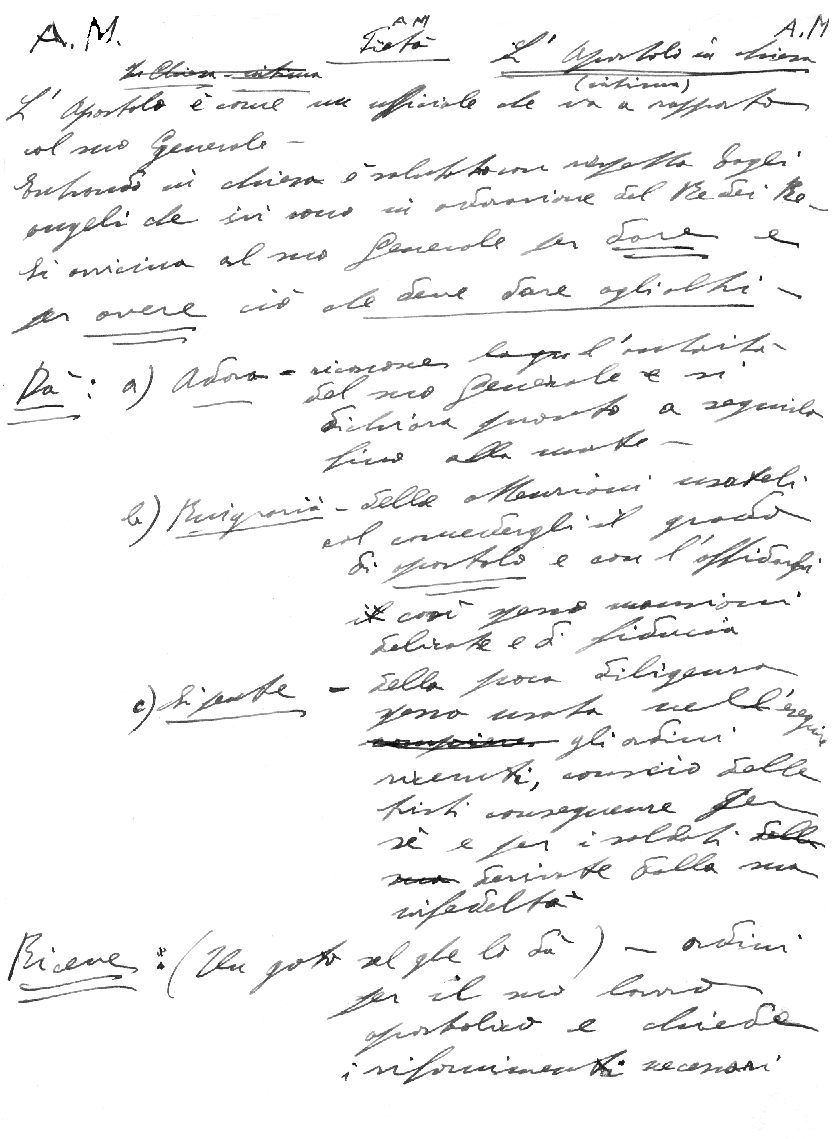 A.M.
A M
Pietà
A.M
L' Apostolo in chiesa
In Chiesa - intima
(intima)
L' Apostolo è come un ufficiale che va a rapporto
col suo Generale -
Entrando in chiesa è salutato con rispetto dagli
angeli che ivi sono in adorazione del Re dei Re -
Si avvicina al suo Generale per dare e
per avere ciò che deve dare agli altri -
Dà: a) Adora - riconosce l'autorità
del suo Generale e si
dichiara pronto a seguirlo
fino alla morte -
b) Ringrazia - delle attenzioni usategli
col concedergli il grado
di apostolo e con l'affidargli
il così spesso mansioni
delicate e di fiducia
c) Si pente - della poca diligenza
spesso usata nell'eseguire
compiere gli ordini
ricevuti, conscio delle
tristi conseguenze per
sè e per i soldati della
sua derivate dalla sua
infedeltà
Riceve: (Un goto sel ghe lo dà) - ordini
per il suo lavoro
apostolico e chiede
i rifornimenti necessari